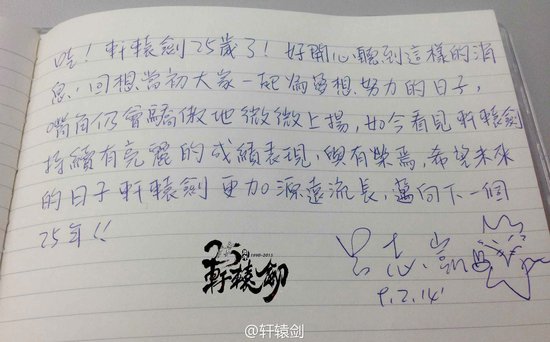 哇！軒轅劍25歲了！好開心聽到這樣的消
息，回想當初大家一起為夢想努力的日子，
嘴角仍會驕傲地微微上揚，如今看見軒轅劍
持續有亮麗的成績表現，與有榮焉，希望未來
的日子軒轅劍更加源遠流長，邁向下一個
25年！！
呂志凱
9.2.14
25
1990-2015
軒轅劍
@轩辕剑